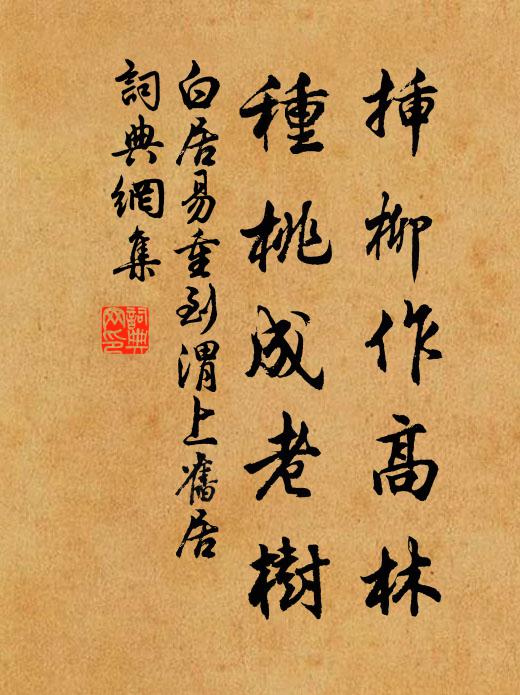 挿柳作高林
種桃成老樹
白居易重到渭上舊居
詞典網集
詞典
网印